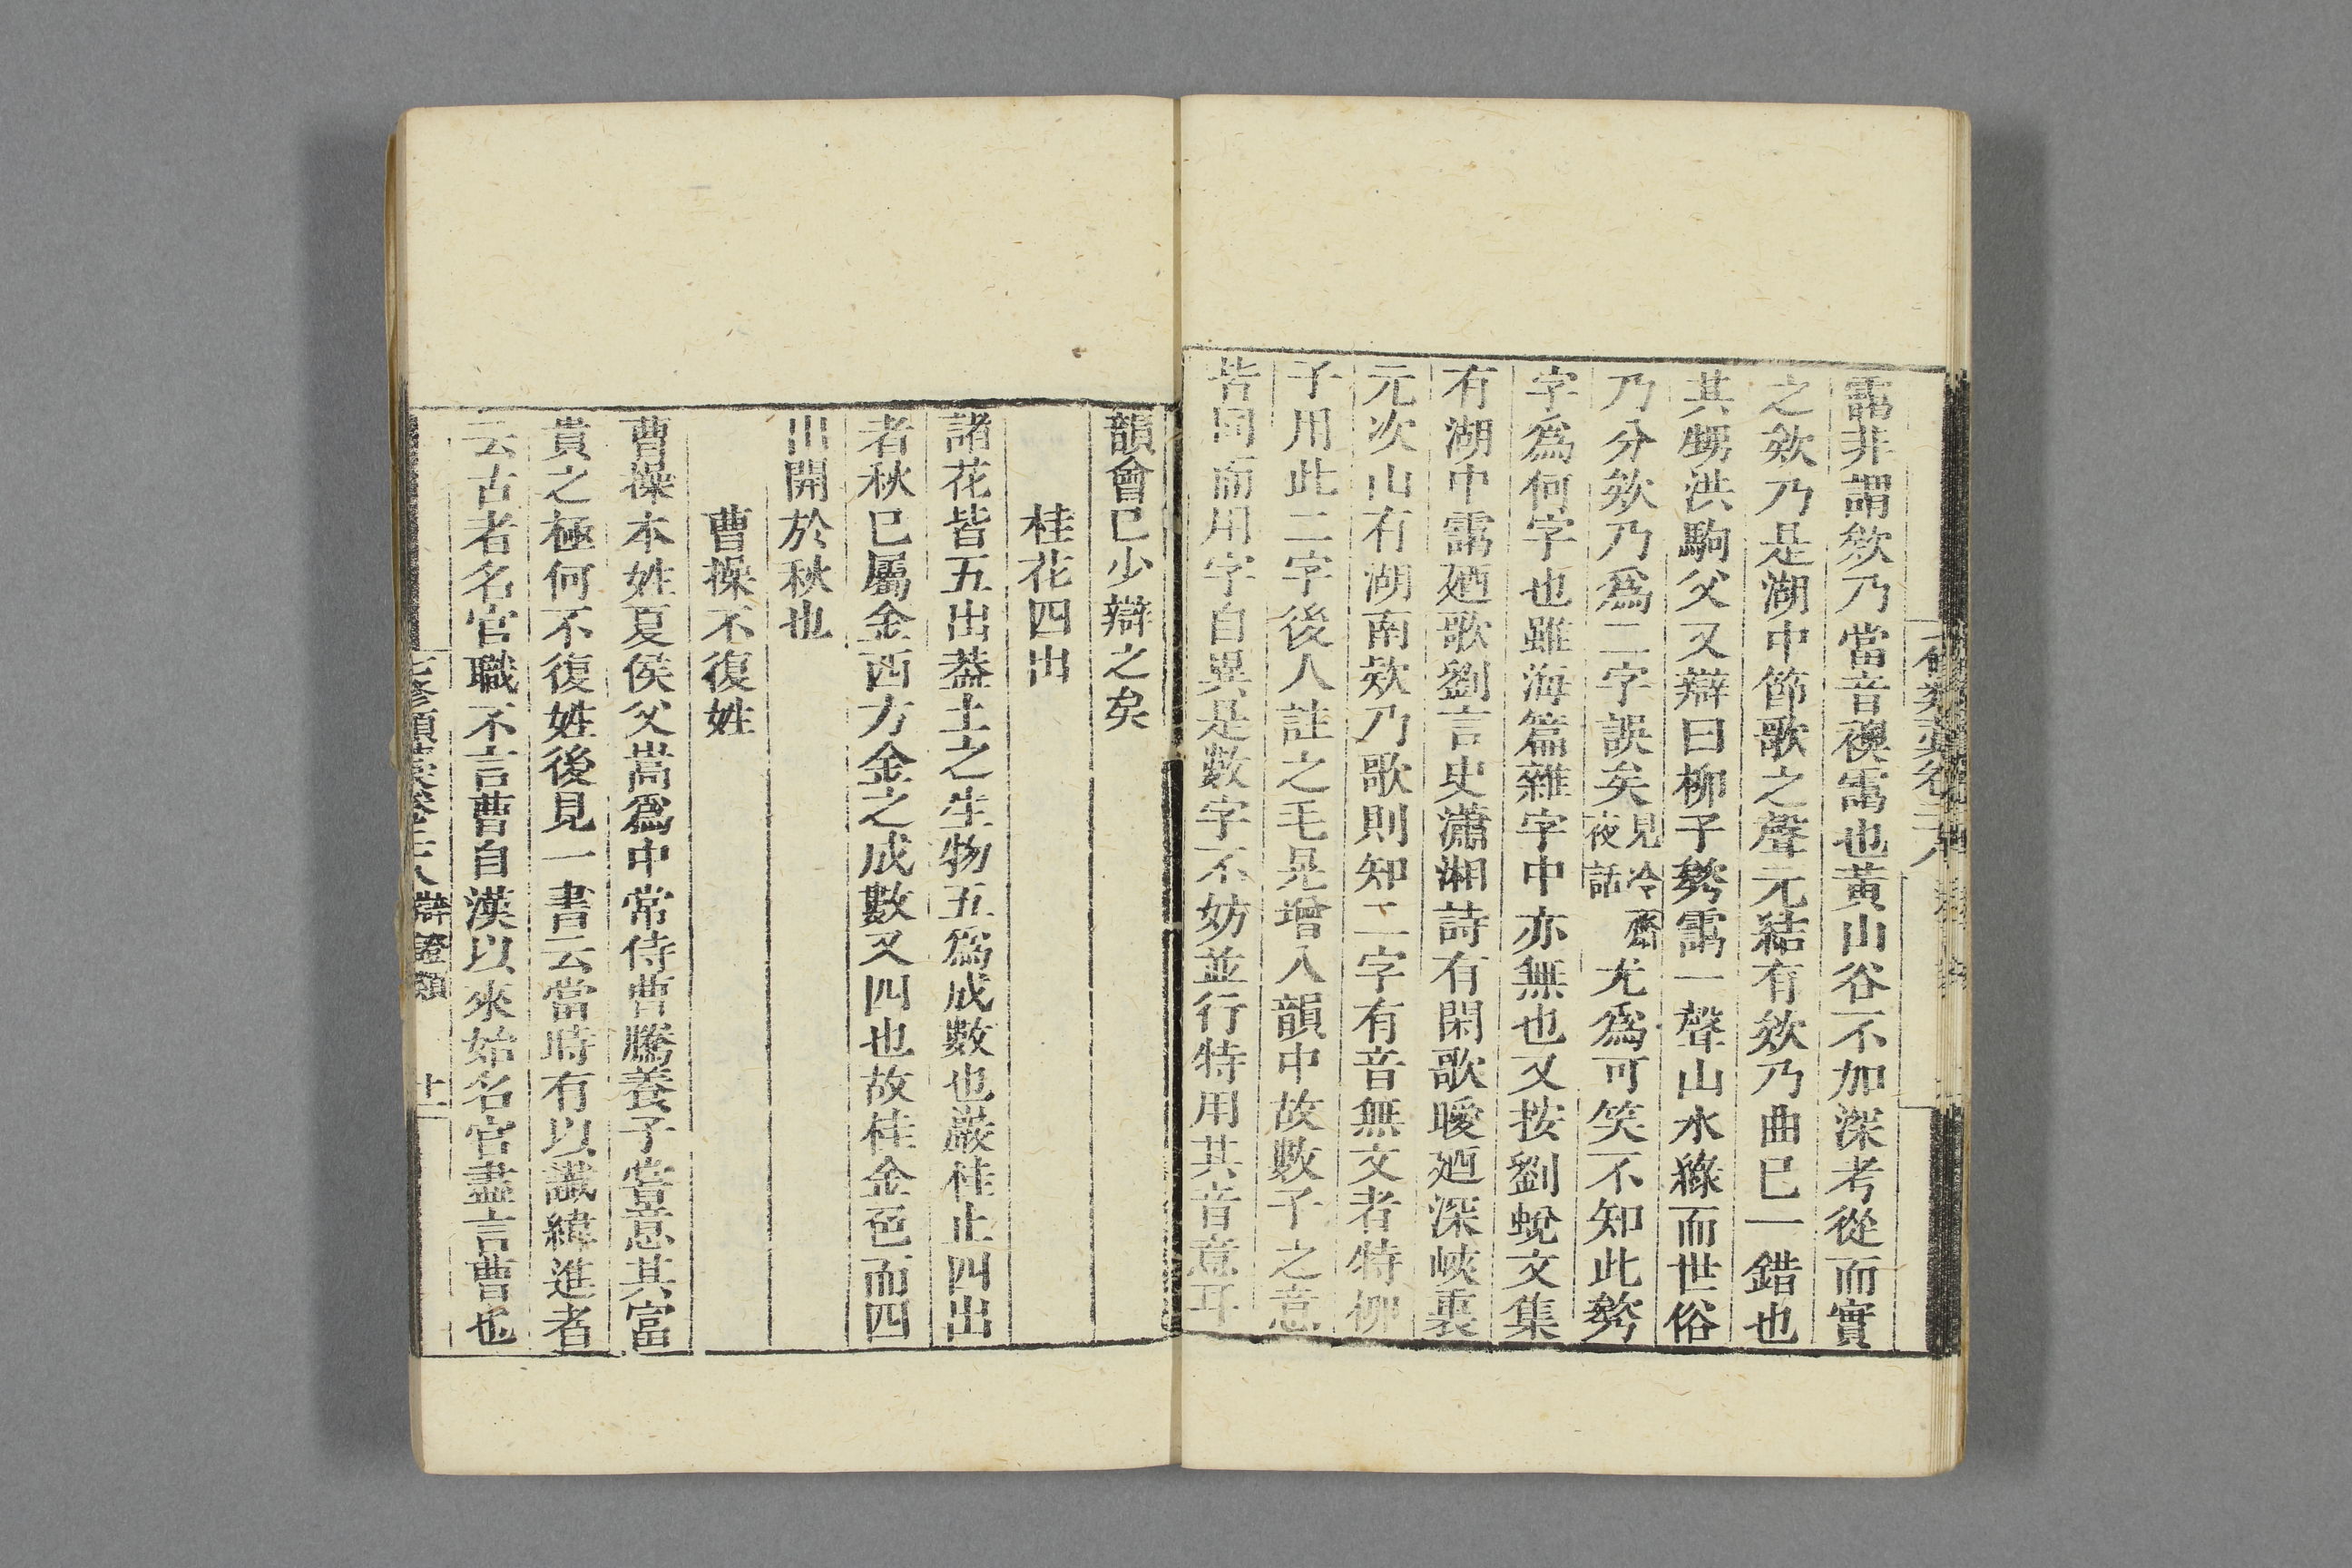 靄非謂欸乃當音襖靄也黃山谷不加深考從而實
之欸乃是湖中節歌之聲元結有欸乃曲巳一錯也
其甥洪駒父又辯曰柳子𣣿靄一聲山水綠而世俗
乃分欸乃爲二字誤矣見冷齋夜話尤爲可笑不知此𣣿
字爲何字也雖海篇雜字中亦無也又按劉蛻文集
有湖中靄廼歌劉言史瀟湘詩有閑歌曖廼深峽裏
元次山有湖南欸乃歌則知二字有音無文者特柳
子用此二字後人註之毛晃增入韻中故數子之意
皆同而用字自異是數字不妨並行特用其音意耳
韻會巳少辯之矣
桂花四出
諸花皆五出葢土之生物五爲成數也巖桂止四出
者秋巳屬金西方金之成數又四也故桂金色而四
出開於秋也
曹操不復姓
曹操本姓夏侯父嵩爲中常侍曹騰養子嘗意其富
貴之極何不復姓後見一書云當時有以讖緯進者
云古者名官職不言曹自漢以來始名官盡言曹也
七修類藁卷二十八 辯證類 廿一